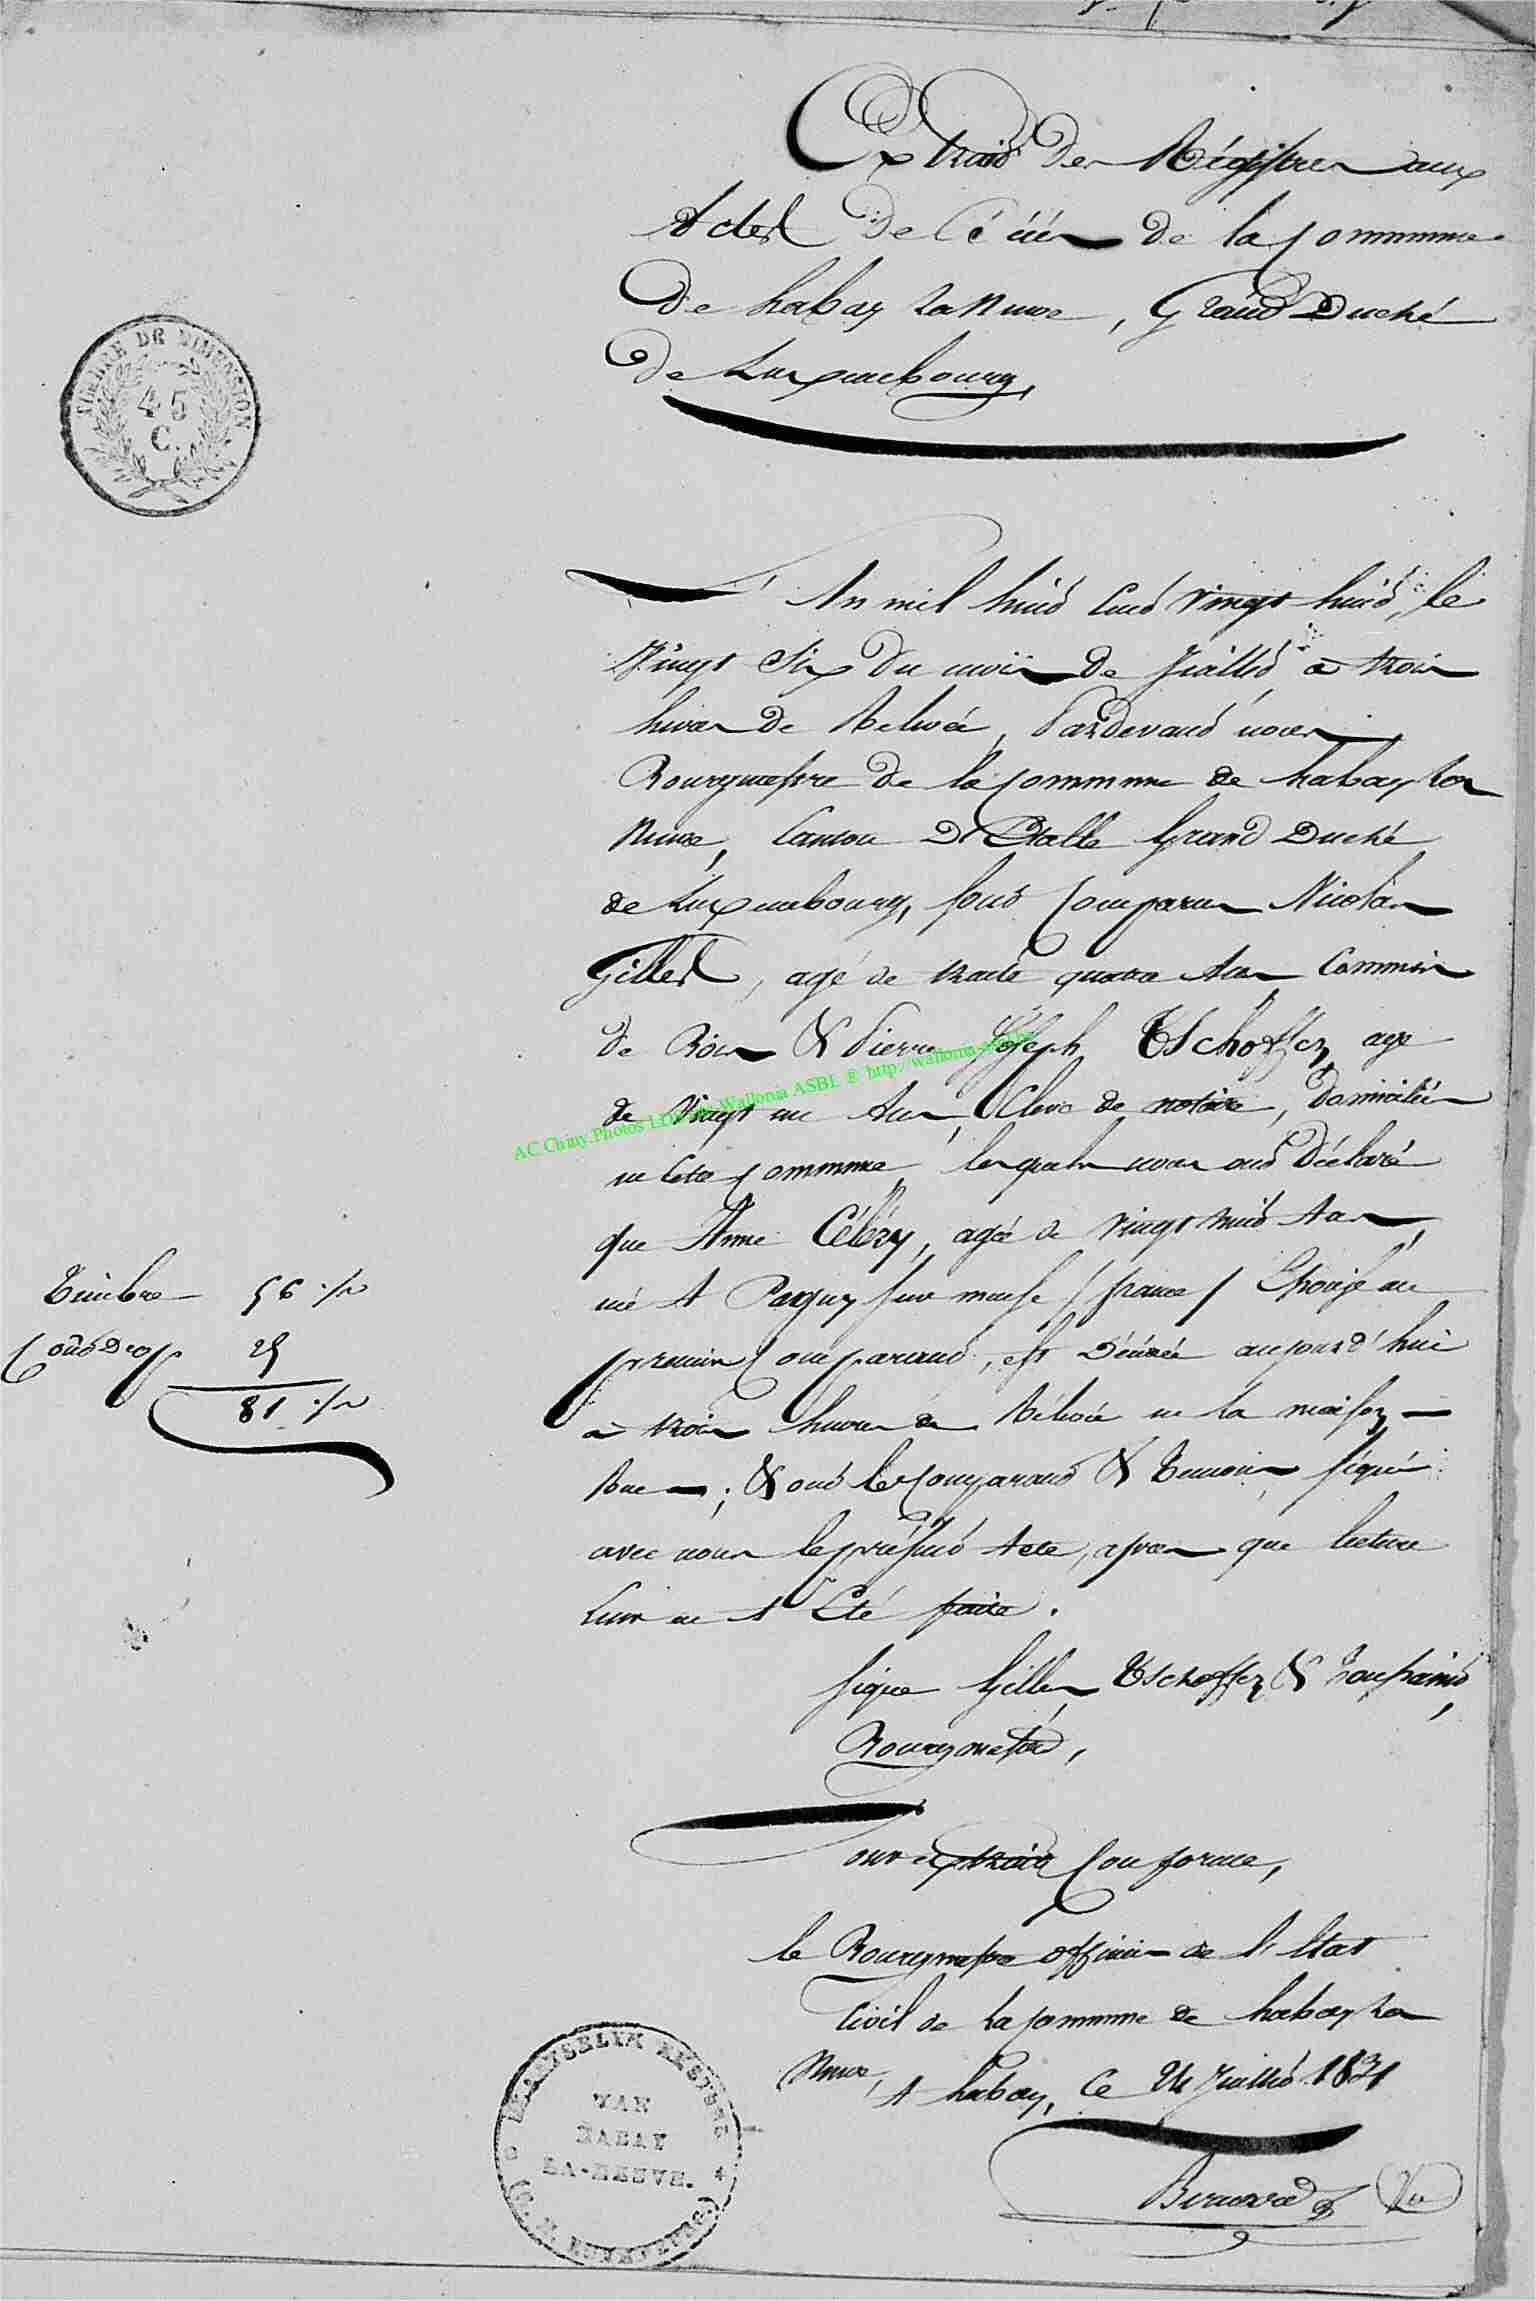 Extrait des Régistres aux
Actes de Décès de la Commune
de habay La Neuve, Grand Duché
de Luxembourg,
TIMBRE DE DIMENSION
45
C.
L'An mil huit Cent vingt huit, le
Vingt Six du mois de Juillet à trois
heures de Relevée, Pardevant nous
Bourgmestre de la Commune de habay La
Neuve, Canton D'Etalle Grand Duché
de Luxembourg, sont Comparus Nicolas
Gilles, agé de trente quatre Ans Commis
de & Pierre Joseph Tschoffen, agé
de Vingt un Ans, Clerc de notaire, Domiciliés
en Cette Commune, lesquels nous ont Déclaré
que Anne Célézy, agée de vingt huit Ans,
née A Pagny sur meuse / france / Epouse au
premier Comparant, est Décédée aujourd'hui
à trois heures de Relevée en la maison
; & ont le Comparant & Temoin signé
avec nous le présent Acte, apres que lecture
Leur en A Eté faite.
signé Gilles, Tschoffen &
Bourgmestre,
Pour extrait Conforme,
le Bourgmestre officier de l'Etat
Civil de La Commune de habay La
Neuve,
A habay, Ce 24 Juillet 1831
Timbre 56
Coût De 25
81
VAN
HABAY
LA-NEUVE.
AC Chiny Photos Wallonia ASBL © http://wallonia-asbl.be